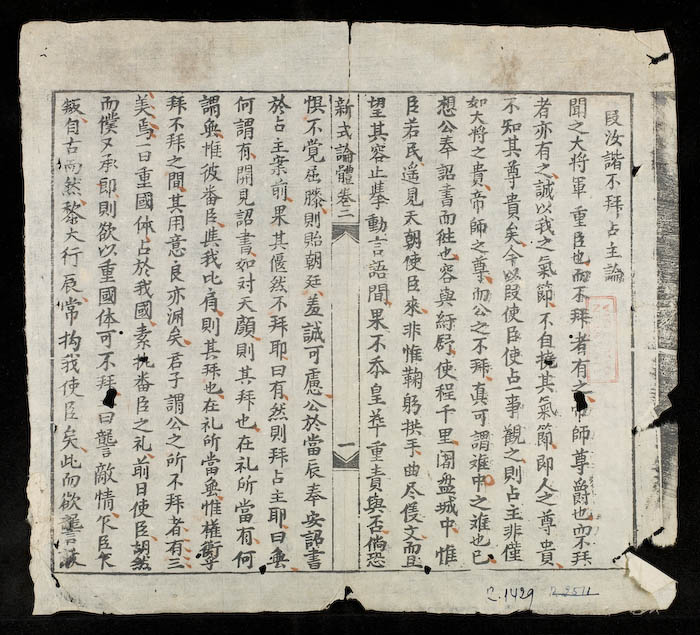 段汝諧不拜占主論
聞之大將軍重臣也而不拜者有之帝師尊爵也而不拜
者亦有之誠以我之氣節不自撓其氣節即人之尊貴
不知其尊貴矣今以段使臣使占一事觀之則占主非僅
如大將之貴帝師之尊而公之不拜真可謂难中之难也已
想公奉詔書而徃也容與紆餘使程千里闍盤城中惟
臣若民遥見天朝使臣來非惟鞠躬拱手曲尽儀文而且
望其容止舉動言語間果不忝皇華重責與否倘恐
新式論體卷二
一
惧不覚屈膝則貽朝廷羞誠可慮公於當辰奉安詔書
於占主案前果其偃然不拜耶曰有然則拜占主耶曰無
何謂有開見詔書如对天顔則其拜也在礼所當有何
謂無惟彼番臣與我比肩則其拜也在礼所當無惟權衡乎
拜不拜之間其用意良亦渊矣君子謂公之所不拜者有三
美焉一曰重國体占於我國素执番臣之礼前日使臣胡然
而僕又承即則欲以重國体可不拜曰讋敵情欠臣欠
叛自古而然黎大行辰常拘我使臣矣此而欲讋
R.1429
R.2511